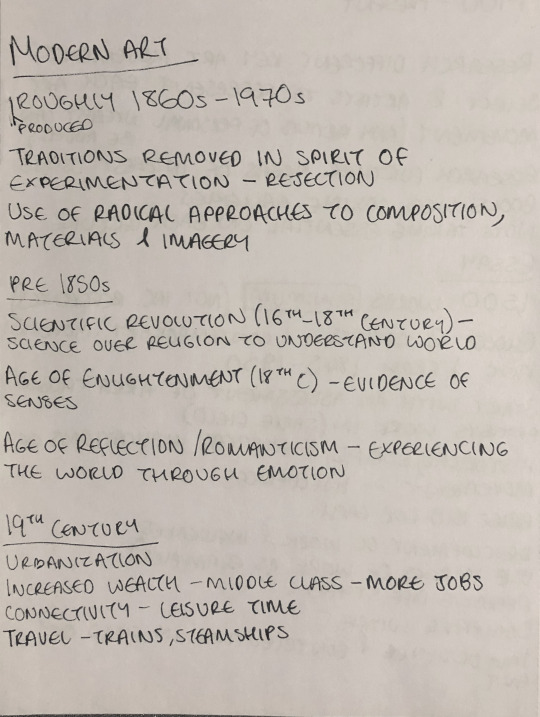 MODERN ART
ROUGHLY 1860s - 1970s
PRODUCED
TRADITIONS REMOVED IN SPIRIT OF
EXPERIMENTATION - REJECTION
USE OF RADICAL APPROACHES TO COMPOSITION,
MATERIALS & IMAGERY
PRE 1850s
SCIENTIFIC REVOLUTION (16TH-18TH CENTURY) -
SCIENCE OVER RELIGION TO UNDERSTAND WORLD
AGE OF ENLIGHTENMENT (18TH C) - EVIDENCE OF
SENSES
AGE OF REFLECTION / ROMANTICISM - EXPERIENCING
THE WORLD THROUGH EMOTION
19TH CENTURY
URBANIZATION
INCREASED WEALTH - MIDDLE CLASS - MORE JOBS
CONNECTIVITY - LEISURE TIME
TRAVEL - TRAINS, STEAMSHIPS